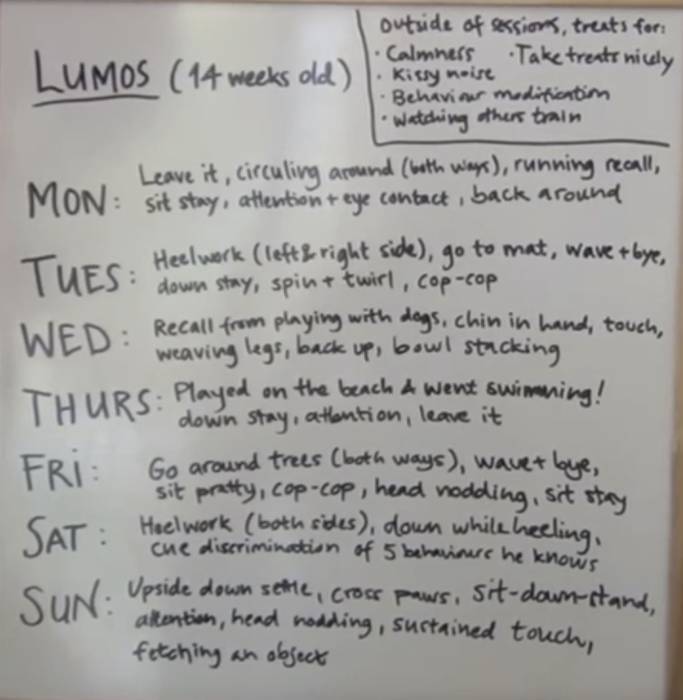 LUMOS (14 weeks old)
outside of sessions, treats for:
· Calmness · Take treats nicely
· Kissy noise
· Behaviour modification
· Watching others train
MON: Leave it, circuling around (both ways), running recall,
sit stay, attention + eye contact, back around
TUES: Heelwork (left & right side), go to mat, wave + bye,
down stay, spin + twirl, cop-cop
WED: Recall from playing with dogs, chin in hand, touch,
weaving legs, back up, bowl stacking
THURS: Played on the beach & went swimming!
down stay, attention, leave it
FRI: Go around trees (both ways), wave + bye,
sit pretty, cop-cop, head nodding, sit stay
SAT: Heelwork (both sides), down while heeling,
cue discrimination of 5 behaviours he knows
SUN: Upside down settle, cross paws, sit-down-stand,
attention, head nodding, sustained touch,
fetching an object